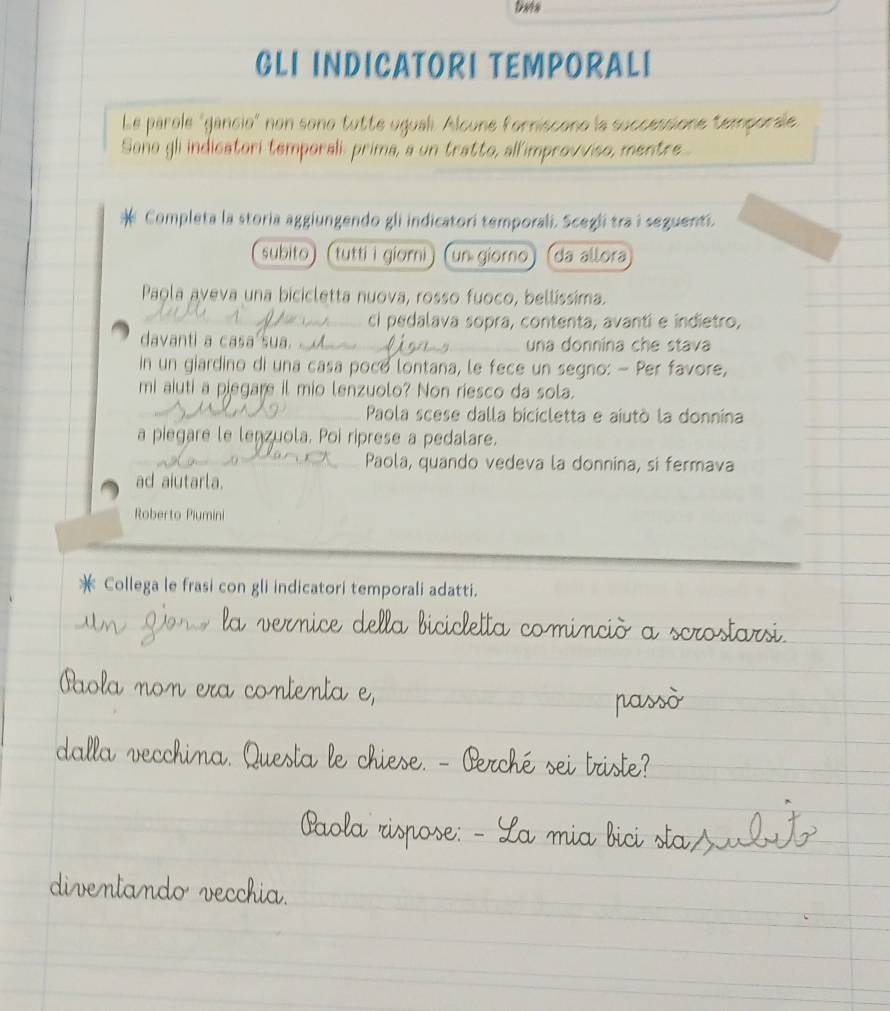 Data
GLI INDICATORI TEMPORALI
Le parole "gancio" non sono tutte uguali. Alcune forniscono la successione temporale.
Sono gli indicatori temporali: prima, a un tratto, all'improvviso, mentre...
Completa la storia aggiungendo gli indicatori temporali. Scegli tra i seguenti.
subito tutti i giorni un giorno da allora
Paola aveva una bicicletta nuova, rosso fuoco, bellissima.
tutti i giorni ci pedalava sopra, contenta, avanti e indietro,
davanti a casa sua. un giorno una donnina che stava
in un giardino di una casa poco lontana, le fece un segno: – Per favore,
mi aiuti a piegare il mio lenzuolo? Non riesco da sola.
subito Paola scese dalla bicicletta e aiutò la donnina
a piegare le lenzuola. Poi riprese a pedalare.
da allora Paola, quando vedeva la donnina, si fermava
ad aiutarla.
Roberto Piumini
Collega le frasi con gli indicatori temporali adatti.
un giorno la vernice della bicicletta cominciò a scrostarsi.
Paola non era contenta e, passò
dalla vecchina. Questa le chiese. - Perché sei triste?
Paola rispose: - La mia bici sta subito
diventando vecchia.